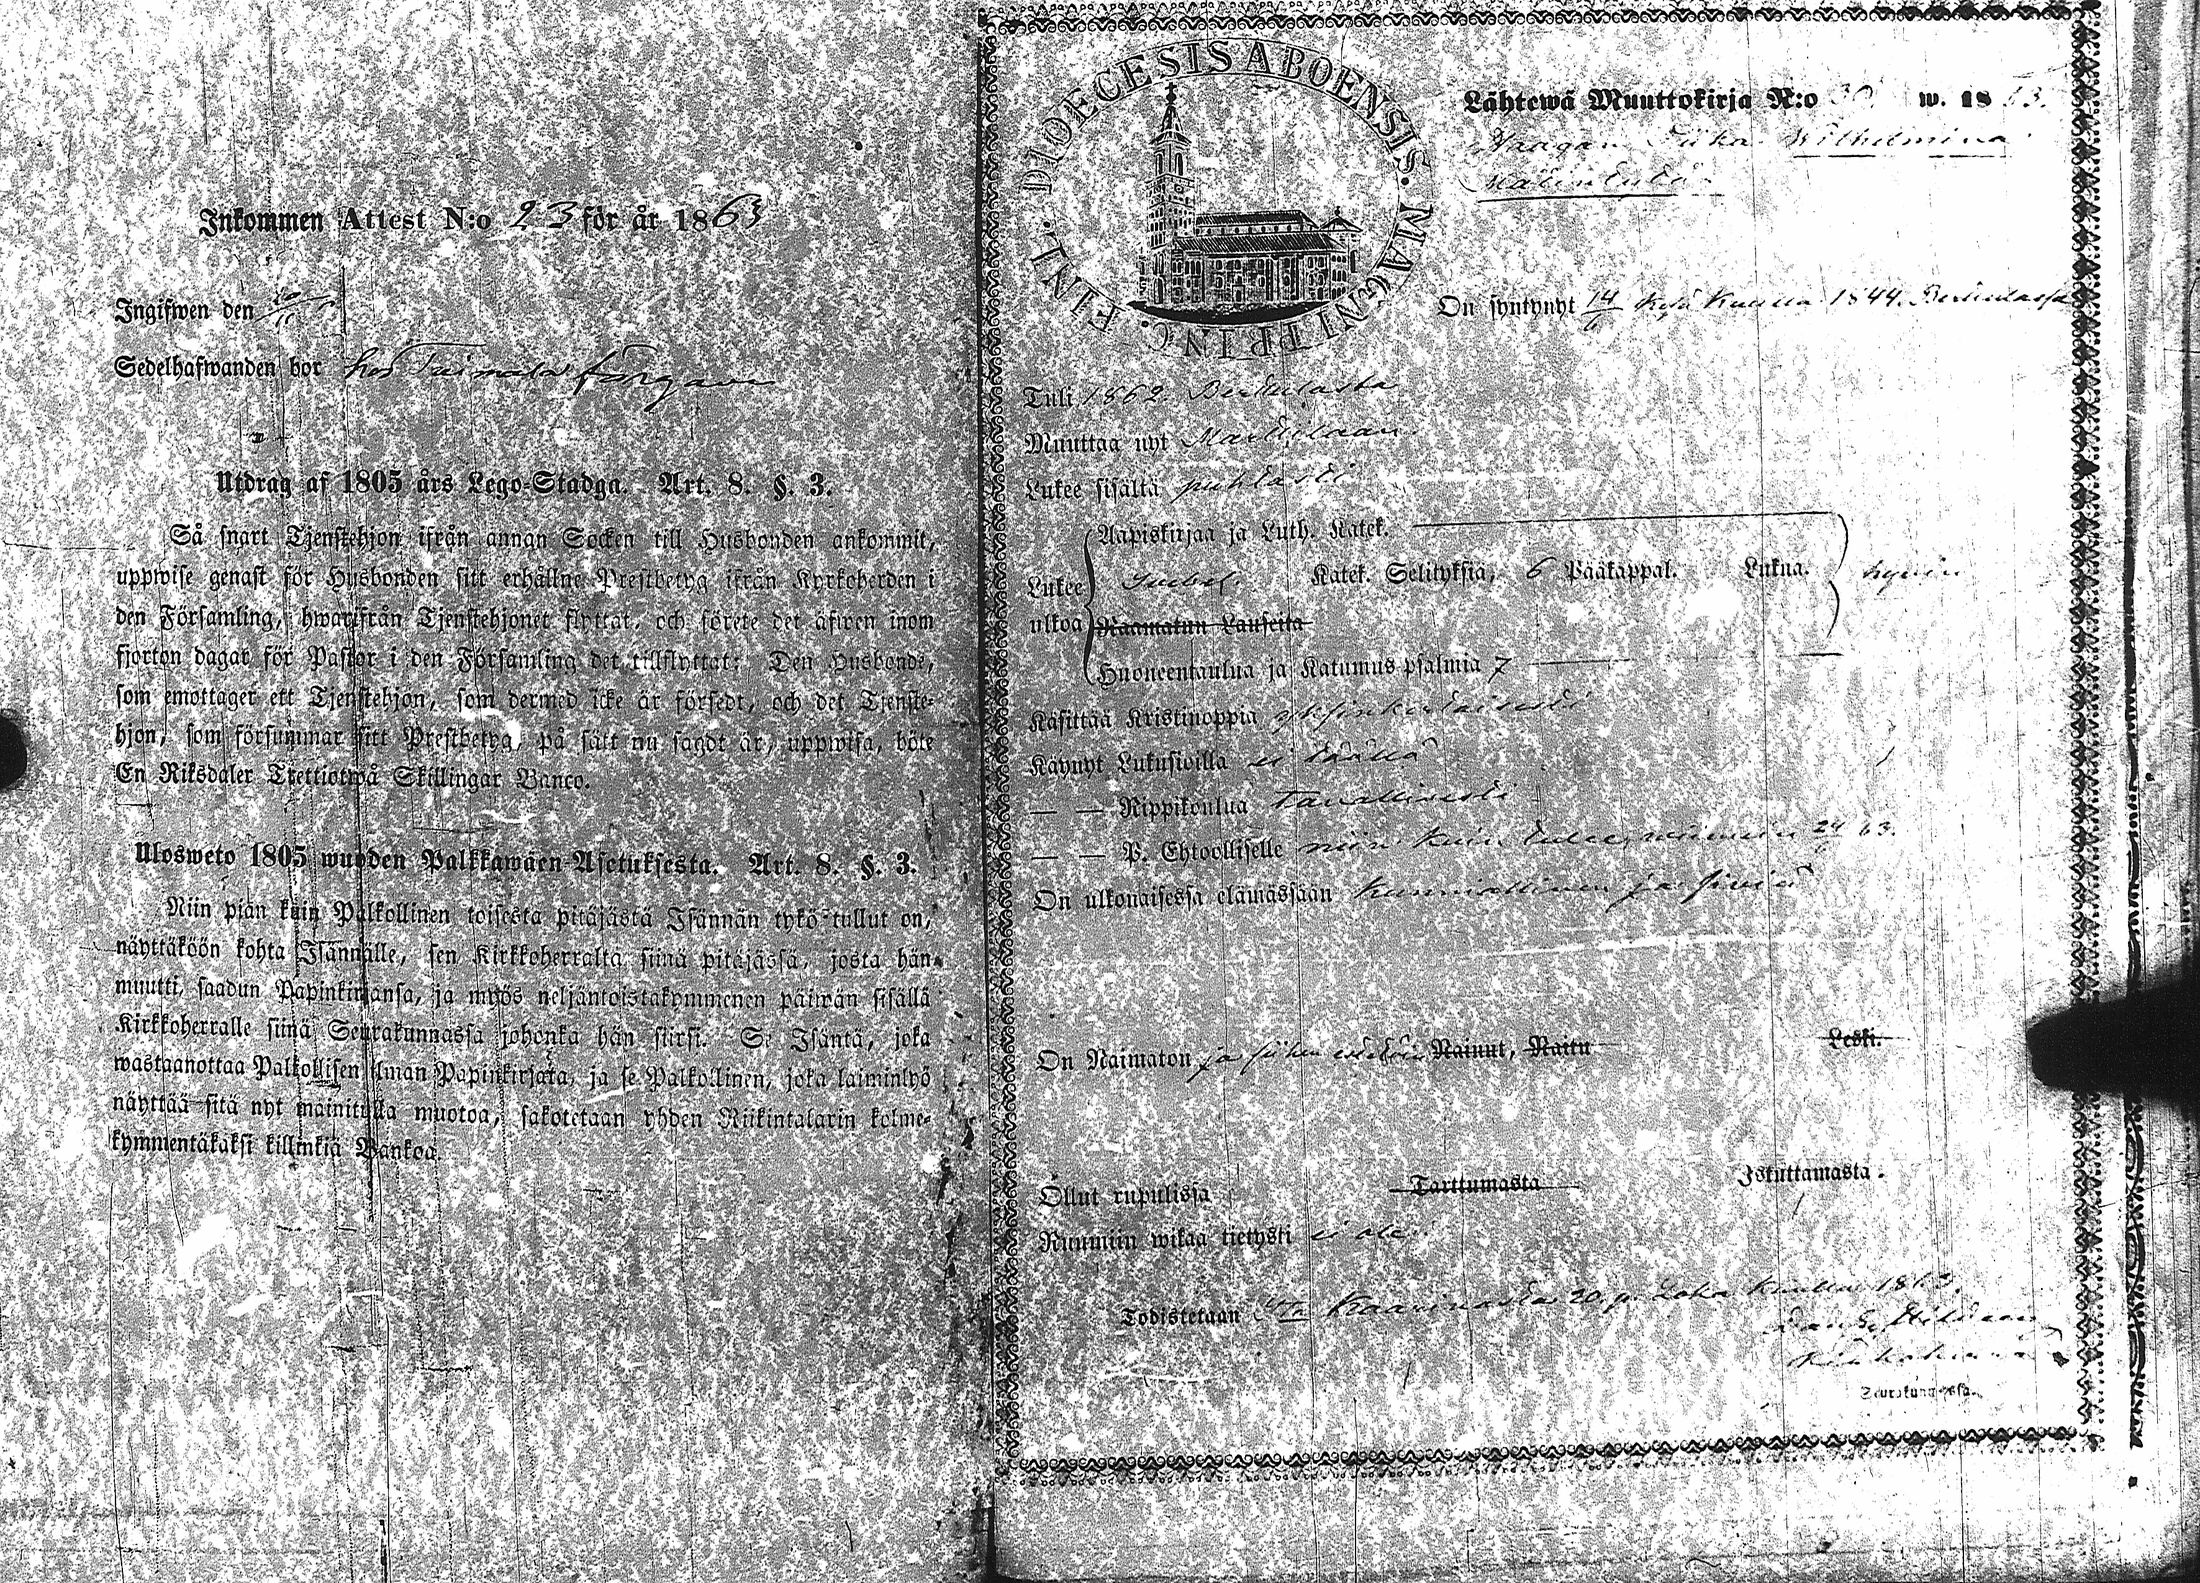 Inkommen Attest N:o 23 för år 1863
Ingifwen den
Sedelhafwanden bor hos
Utdrag af 1805 års Lego-Stadga. Art. 8. §. 3.
Så snart Tjenstehjon ifrån annan Socken till Husbonden ankommit,
uppwise genast för Husbonden sitt erhållne Prestbetyg ifrån Kyrkoherden i
den Församling, hwarifrån Tjenstehjonet flyttat, och förete det äfwen inom
fjorton dagar för Pastor i den Församling det tillflyttat: Den Husbonde,
som emottager ett Tjenstehjon, som dermed icke är försedt, och det Tjenste-
hjon, som försummar sitt Prestbetyg, på sätt nu sagdt är, uppwisa, böte
En Riksdaler Trettiotwå Skillingar Banco.
Ulosweto 1805 wuoden Palkkawäen-Asetuksesta. Art. 8. §. 3.
Niin pian kuin Palkollinen toisesta pitäjästä Isännän tykö tullut on,
näyttäköön kohta Isännälle, sen Kirkkoherralta siinä pitäjässä, josta hän
muutti, saadun Papinkirjansa, ja myös neljäntoistakymmenen päiwän sisällä
Kirkkoherralle siinä Seurakunnassa johonka hän siirsi. Se Isäntä, joka
wastaanottaa Palkollisen ilman Papinkirjata, ja se Palkollinen, joka laiminlyö
näyttää sitä nyt mainitulla muotoa, sakotetaan yhden Riikintalarin kolme-
kymmentäkaksi killinkiä Bankoa.
DIOECESIS ABOENSIS. MAGNI PRINC. FINL.
Lähtewä Muuttokirja N:o 30 w. 1863.
Piika Wilhelmina
On syntynyt 14/6 Kesä Kuussa 1844.
Tuli 1862.
Muuttaa nyt Marttilaan
Lukee sisältä puhtasti
Aapiskirjaa ja Luth. Katek.
Lukee Katek. Selityksiä, 6 Pääkappal. Lukua. hywin
ulkoa Raamatun Lauseita
Huoneentaulua ja Katumus psalmia 7
Käsittää Kristinoppia yksinkertaisesti
Käynyt Lukusioilla ei täällä
— — Rippikoulua Tawallisesti
— — P. Ehtoolliselle niin kuin tulee, wiimein 63.
On ulkonaisessa elämässään kunniallinen ja siwiä
On Naimaton ja Nainut, Naitu Leski.
Ollut rupulissa Tarttumasta Istuttamasta.
Ruumiin wikaa tietysti ei ole.
Todistetaan Kaarinasta 20 p. Loka Kuussa 1863.
Seurakunnassa.